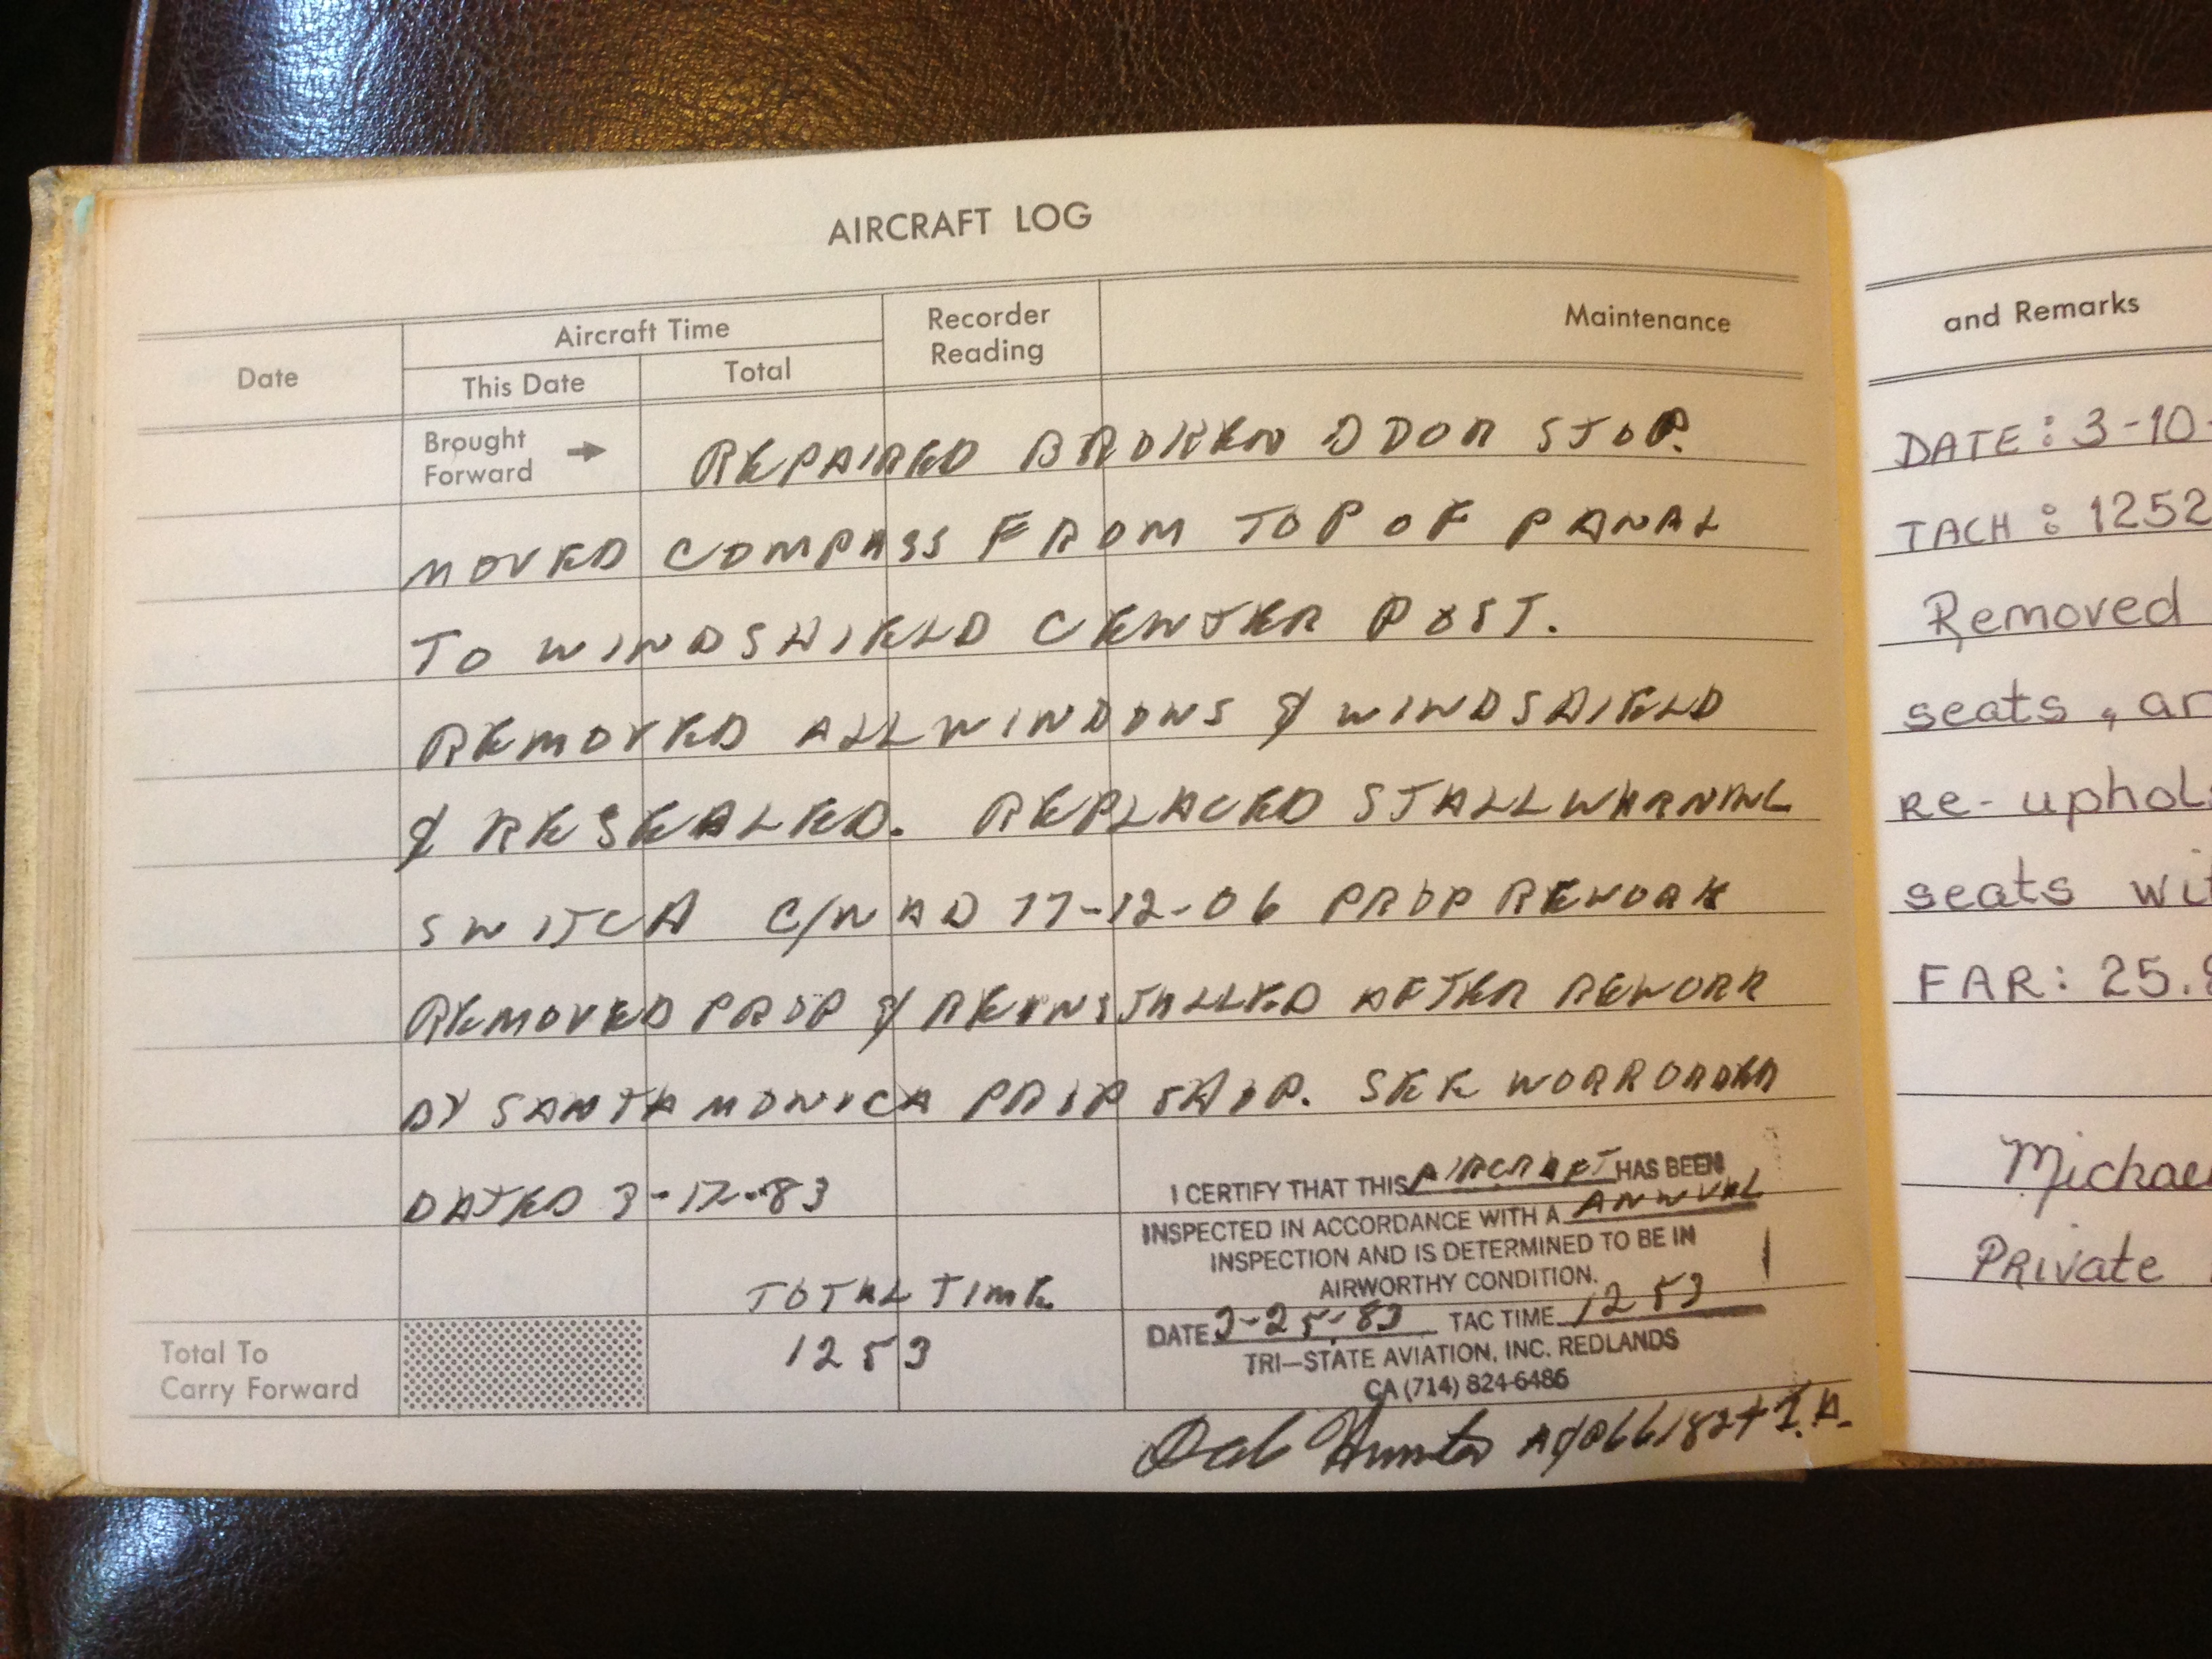 AIRCRAFT LOG
Date
Aircraft Time
This Date
Total
Recorder
Reading
Maintenance
Brought
Forward
REPAIRED BROKEN DOOR STOP.
MOVED COMPASS FROM TOP OF PANAL
TO WINDSHIELD CENTER POST.
REMOVED ALL WINDOWS & WINDSHIELD
& RESEALED. REPLACED STALL WARNING
SWITCH C/W AD 77-12-06 PROP REWORK
REMOVED PROP & REINSTALLED AFTER REWORK
BY SANTA MONICA PROP SHOP. SEE WORK ORDER
DATED 3-17-83
I CERTIFY THAT THIS AIRCRAFT HAS BEEN
INSPECTED IN ACCORDANCE WITH A ANNUAL
INSPECTION AND IS DETERMINED TO BE IN
AIRWORTHY CONDITION.
DATE 3-25-83 TAC TIME 1253
TRI-STATE AVIATION, INC. REDLANDS
CA (714) 824-6486
TOTAL TIME
Total To
Carry Forward
1253
Hunter A&P 661824 I.A.
and Remarks
DATE: 3-10-
TACH: 1252
Removed
seats, an
re-uphol
seats wit
FAR: 25.8
Michael
Private